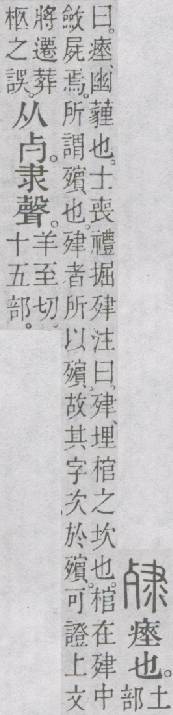 殔瘞也。土部
曰。瘞、幽薶也。士喪禮掘肂注曰。肂、埋棺之坎也。棺在肂中
斂屍焉。所謂殯也。肂者所以殯。故其字次於殯。可證上文
將遷葬
柩之誤。
从歺。隶聲。
羊至切。
十五部。